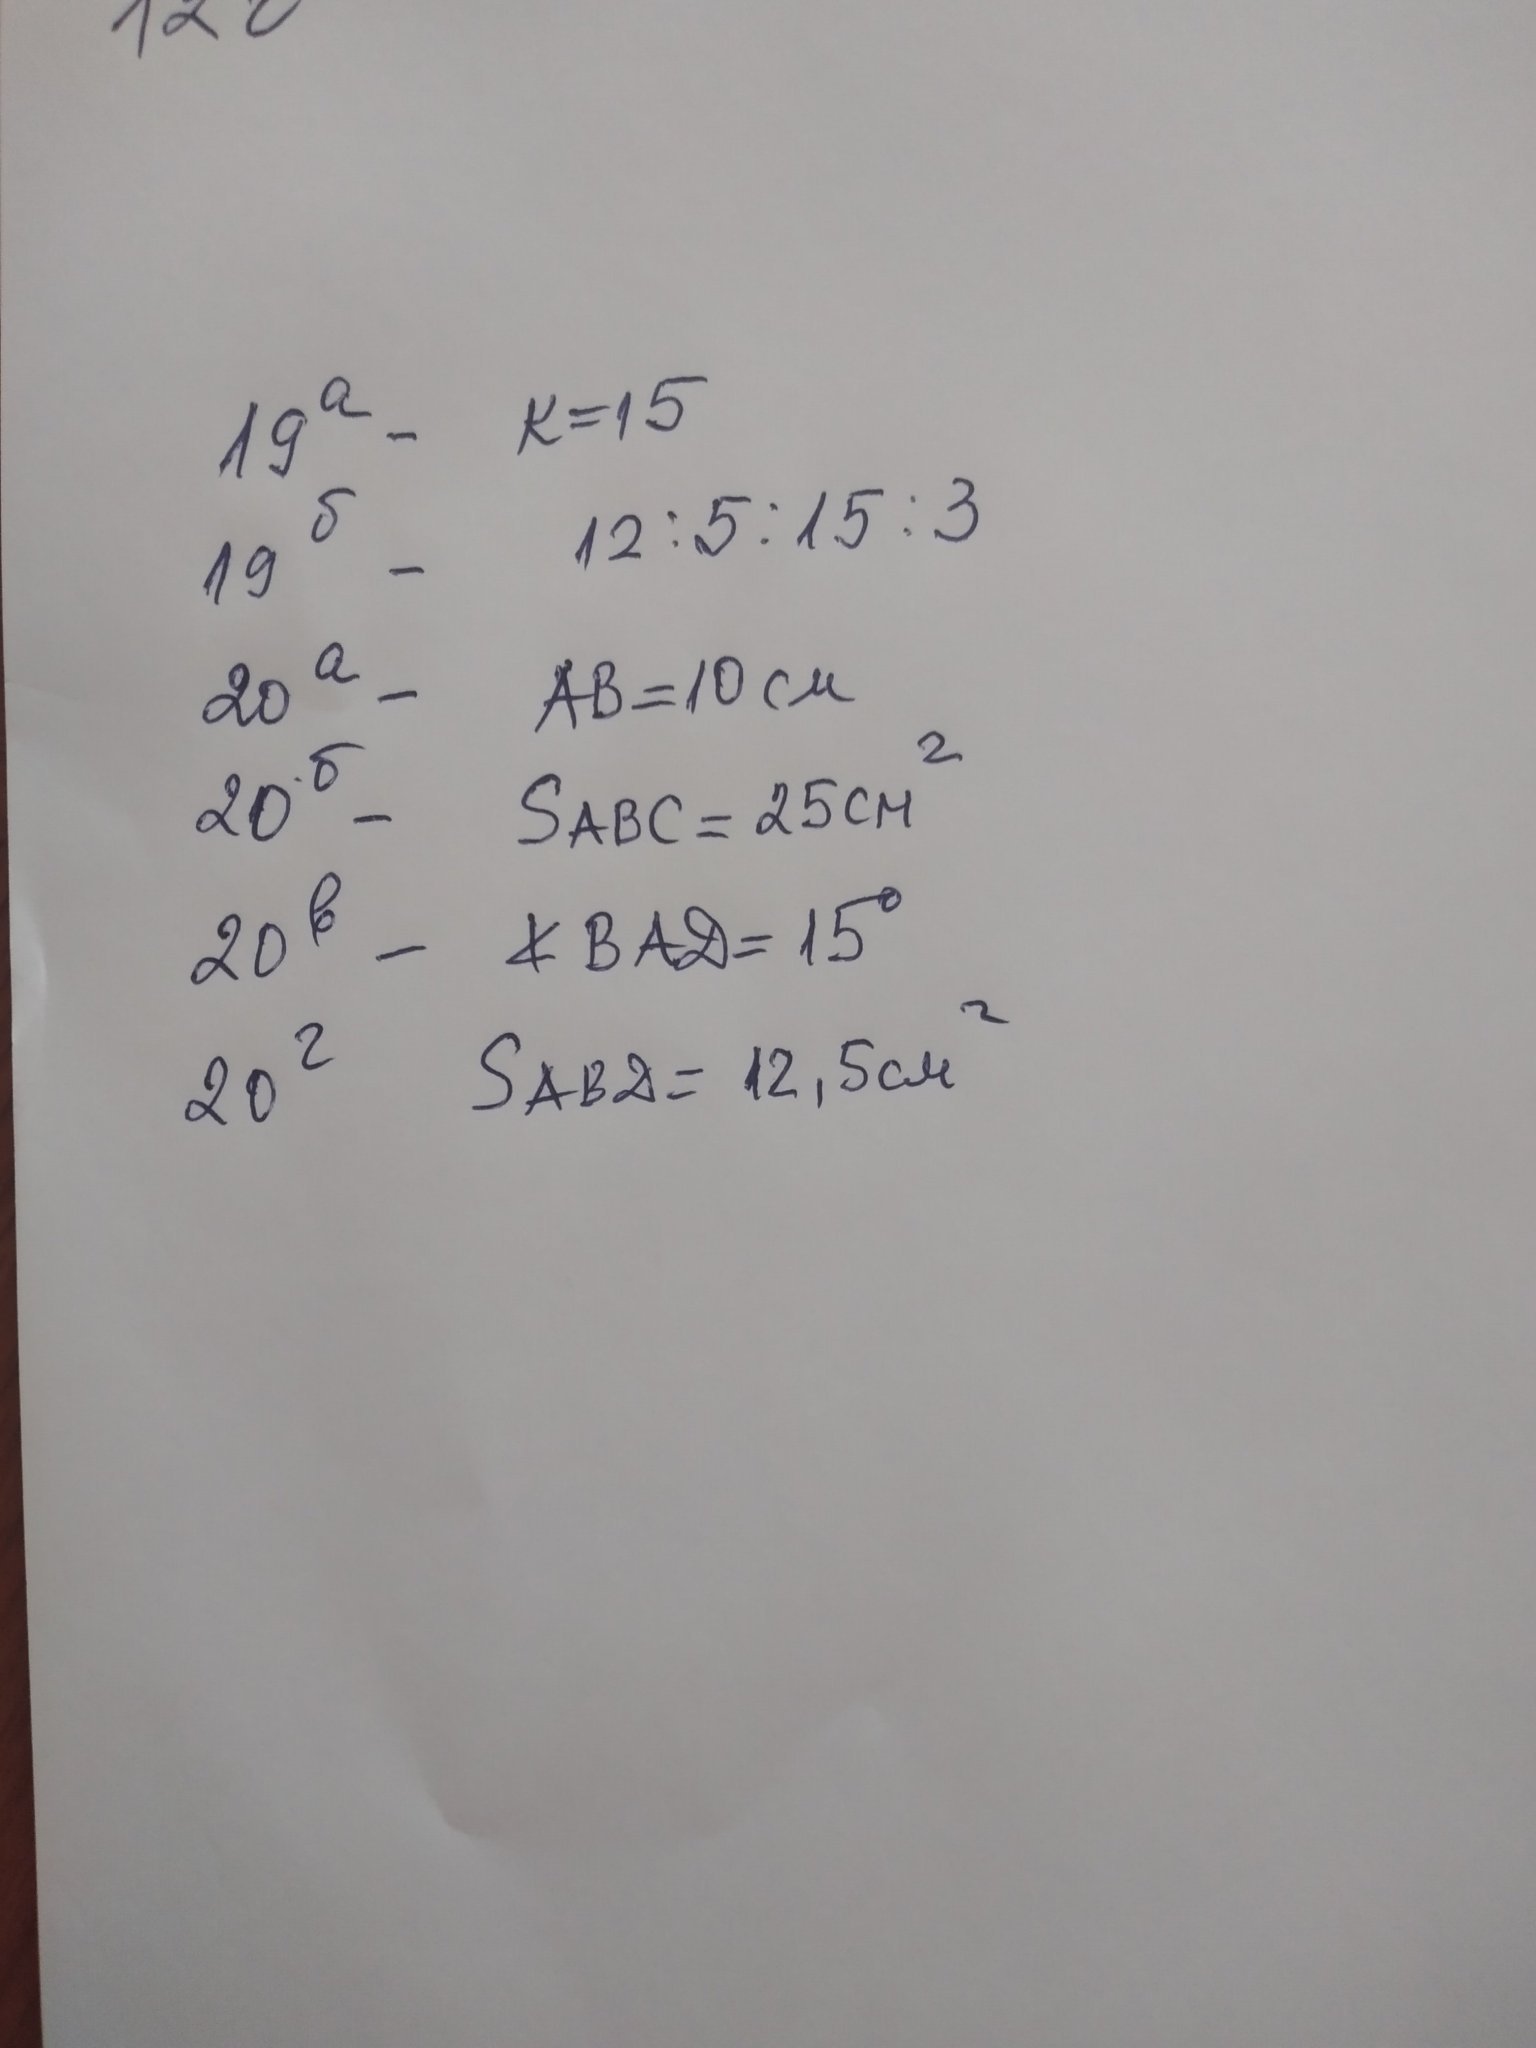 19а - К=15
19б - 12:5:15:3
20а - АВ=10 см
20б - SАВС = 25см²
20в - ∡ ВАД = 15°
20г SАВД = 12,5см²